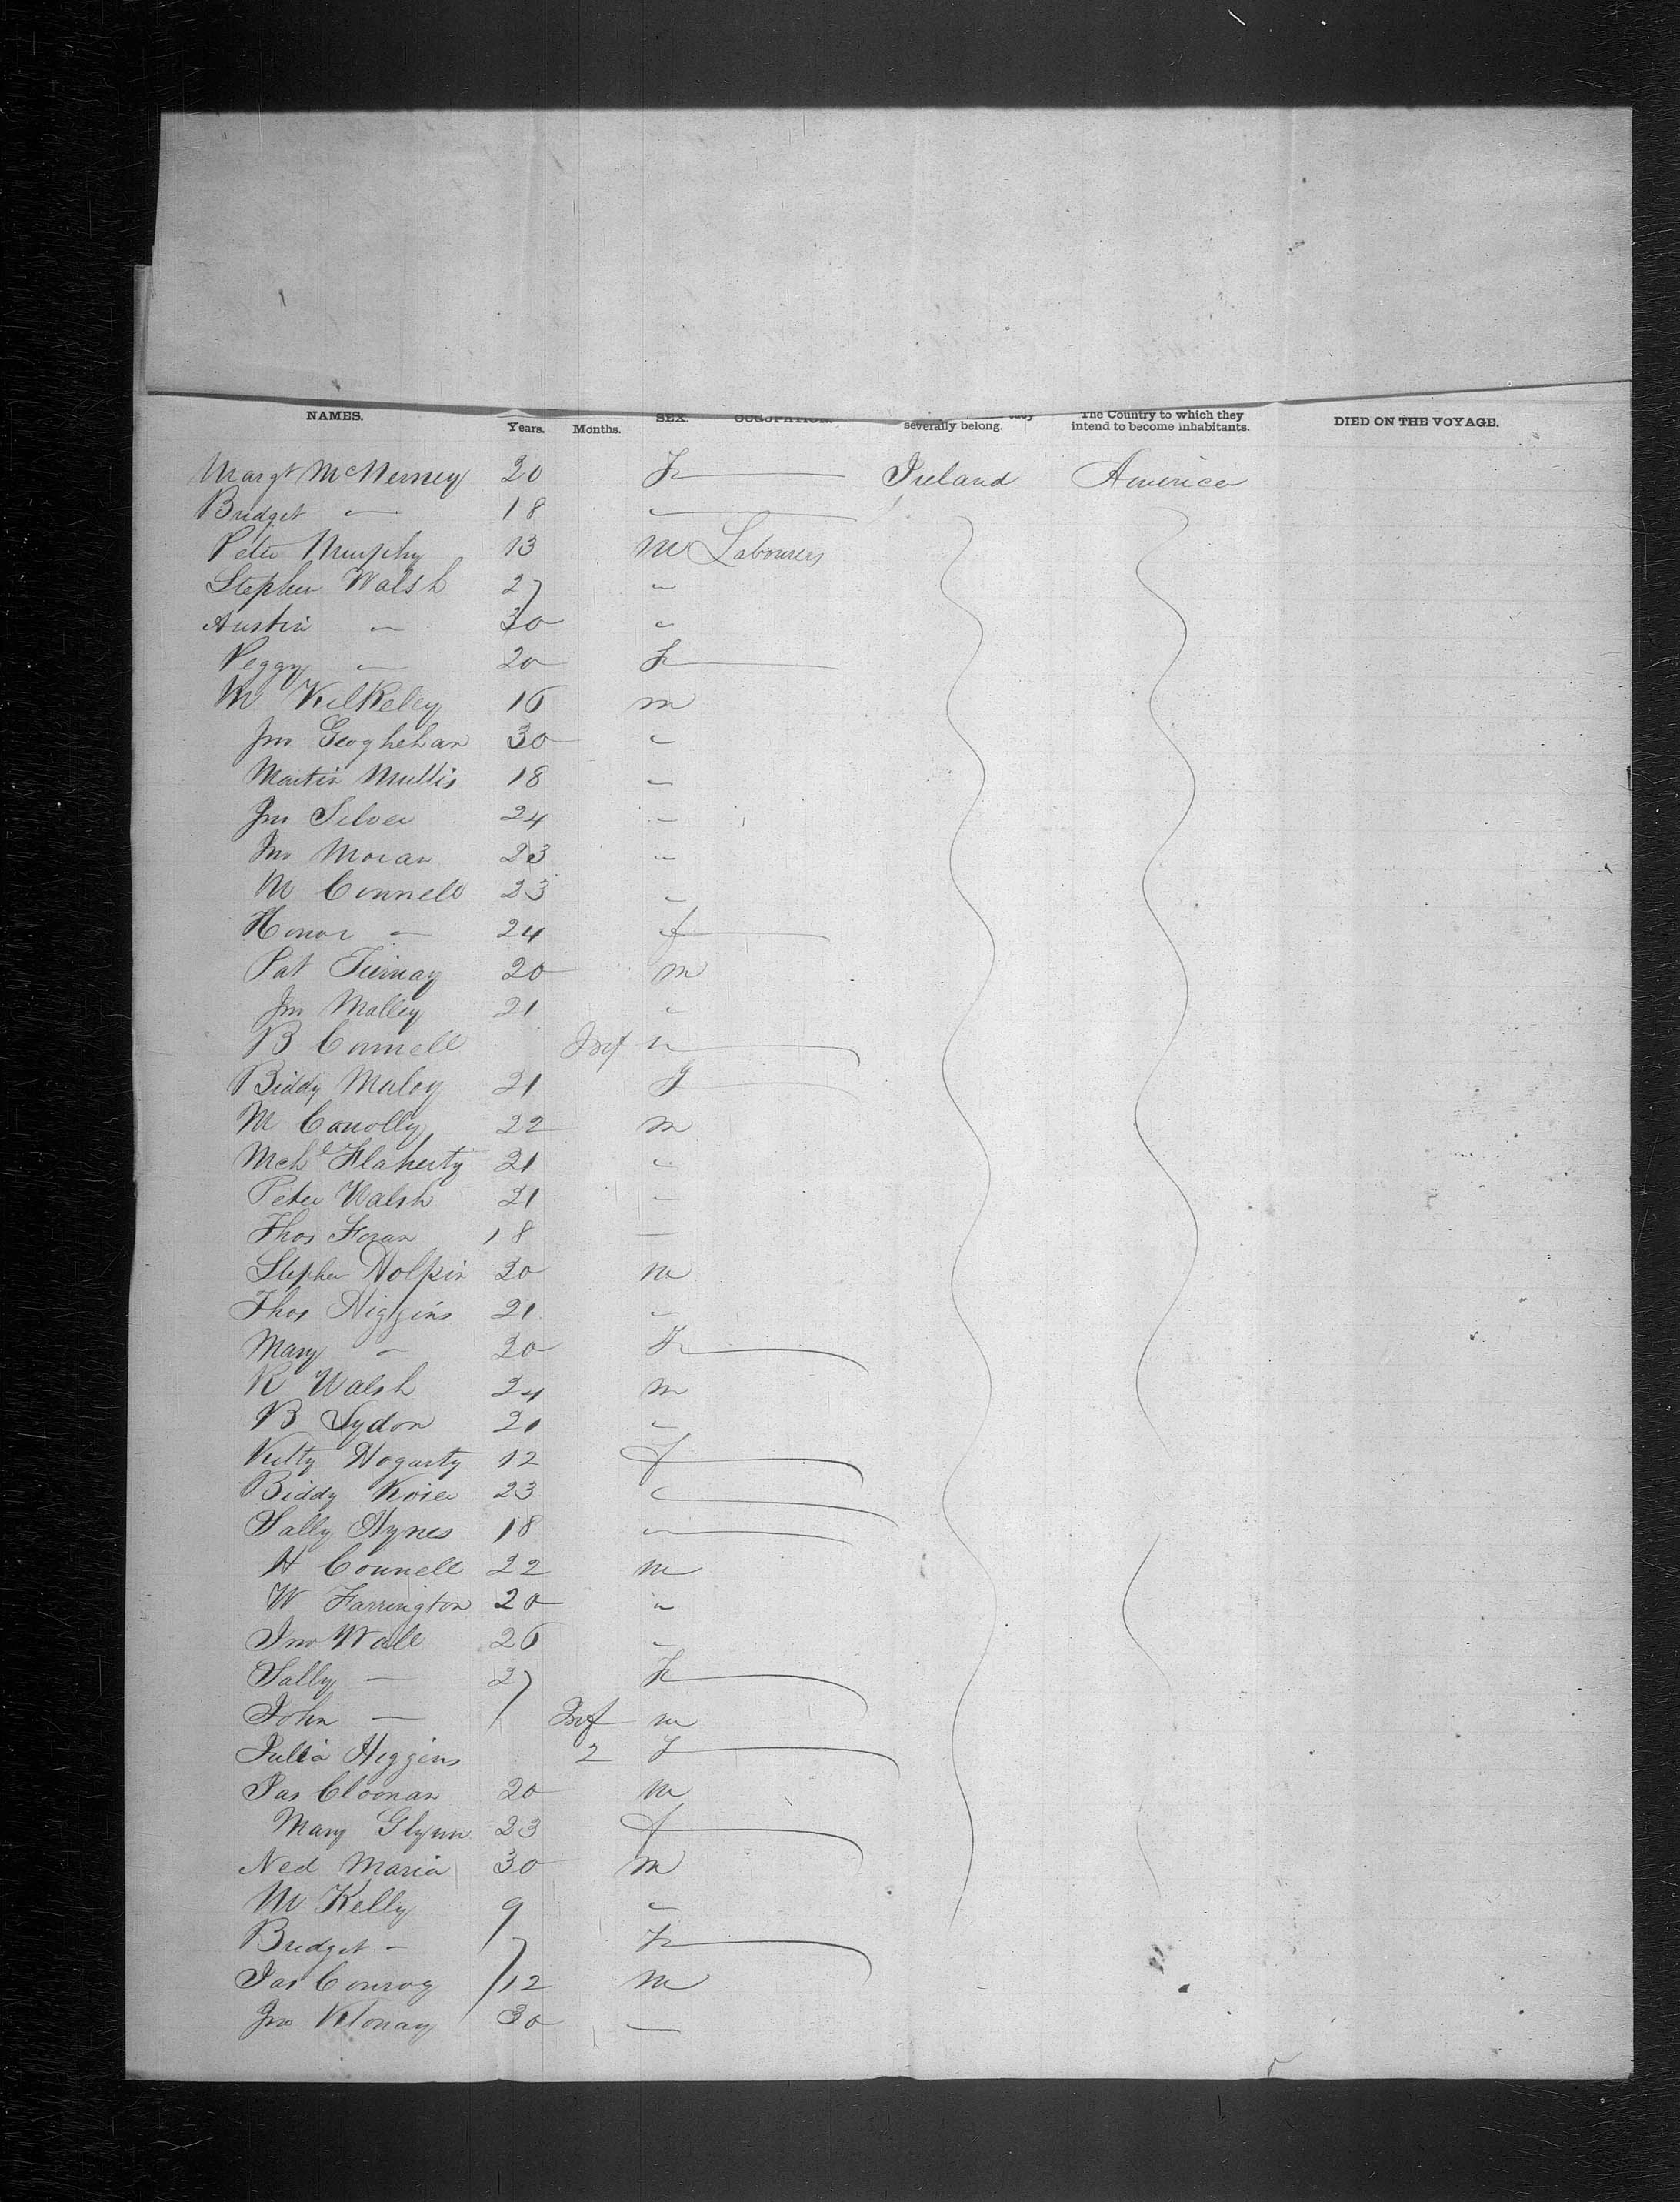 NAMES. Years. Months. SEX. OCCUPATION. severally belong. The Country to which they intend to become inhabitants. DIED ON THE VOYAGE.
Margt McNerney 20 F Ireland America
Bridget " 18 "
Peter Murphy 13 M Labourers
Stephen Walsh 27 "
Austin " 30 "
Peggy " 20 F
M Kilkeley 16 m
Jno Geoghehan 30 "
Martin Mullis 18 "
Jno Silver 24 "
Jno Moran 23 "
M Connell 23 "
Honor " 24 f
Pat Tiernay 20 m
Jno Malley 21 "
B Connell Inf "
Biddy Maloy 21 f
M Conolly 22 m
Mchl Flaherty 21 "
Peter Walsh 21 "
Thos Foran 18 "
Stephen Holpin 20 m
Thos Higgins 21 "
Mary " 20 F
R Walsh 24 m
B Lydon 21 "
Kitty Hogarty 12 f
Biddy 23 "
Sally Hynes 18 "
H Connell 22 m
W Farrington 20 "
Jno Wall 26 "
Sally — 27 F
John — Inf m
Julia Higgins 2 F
Jas Cloonan 20 m
Mary Glynn 23 f
Ned Maria 30 m
M Kelly 9 "
Bridget " 7 F
Jas Conroy 12 m
Jno 30 "